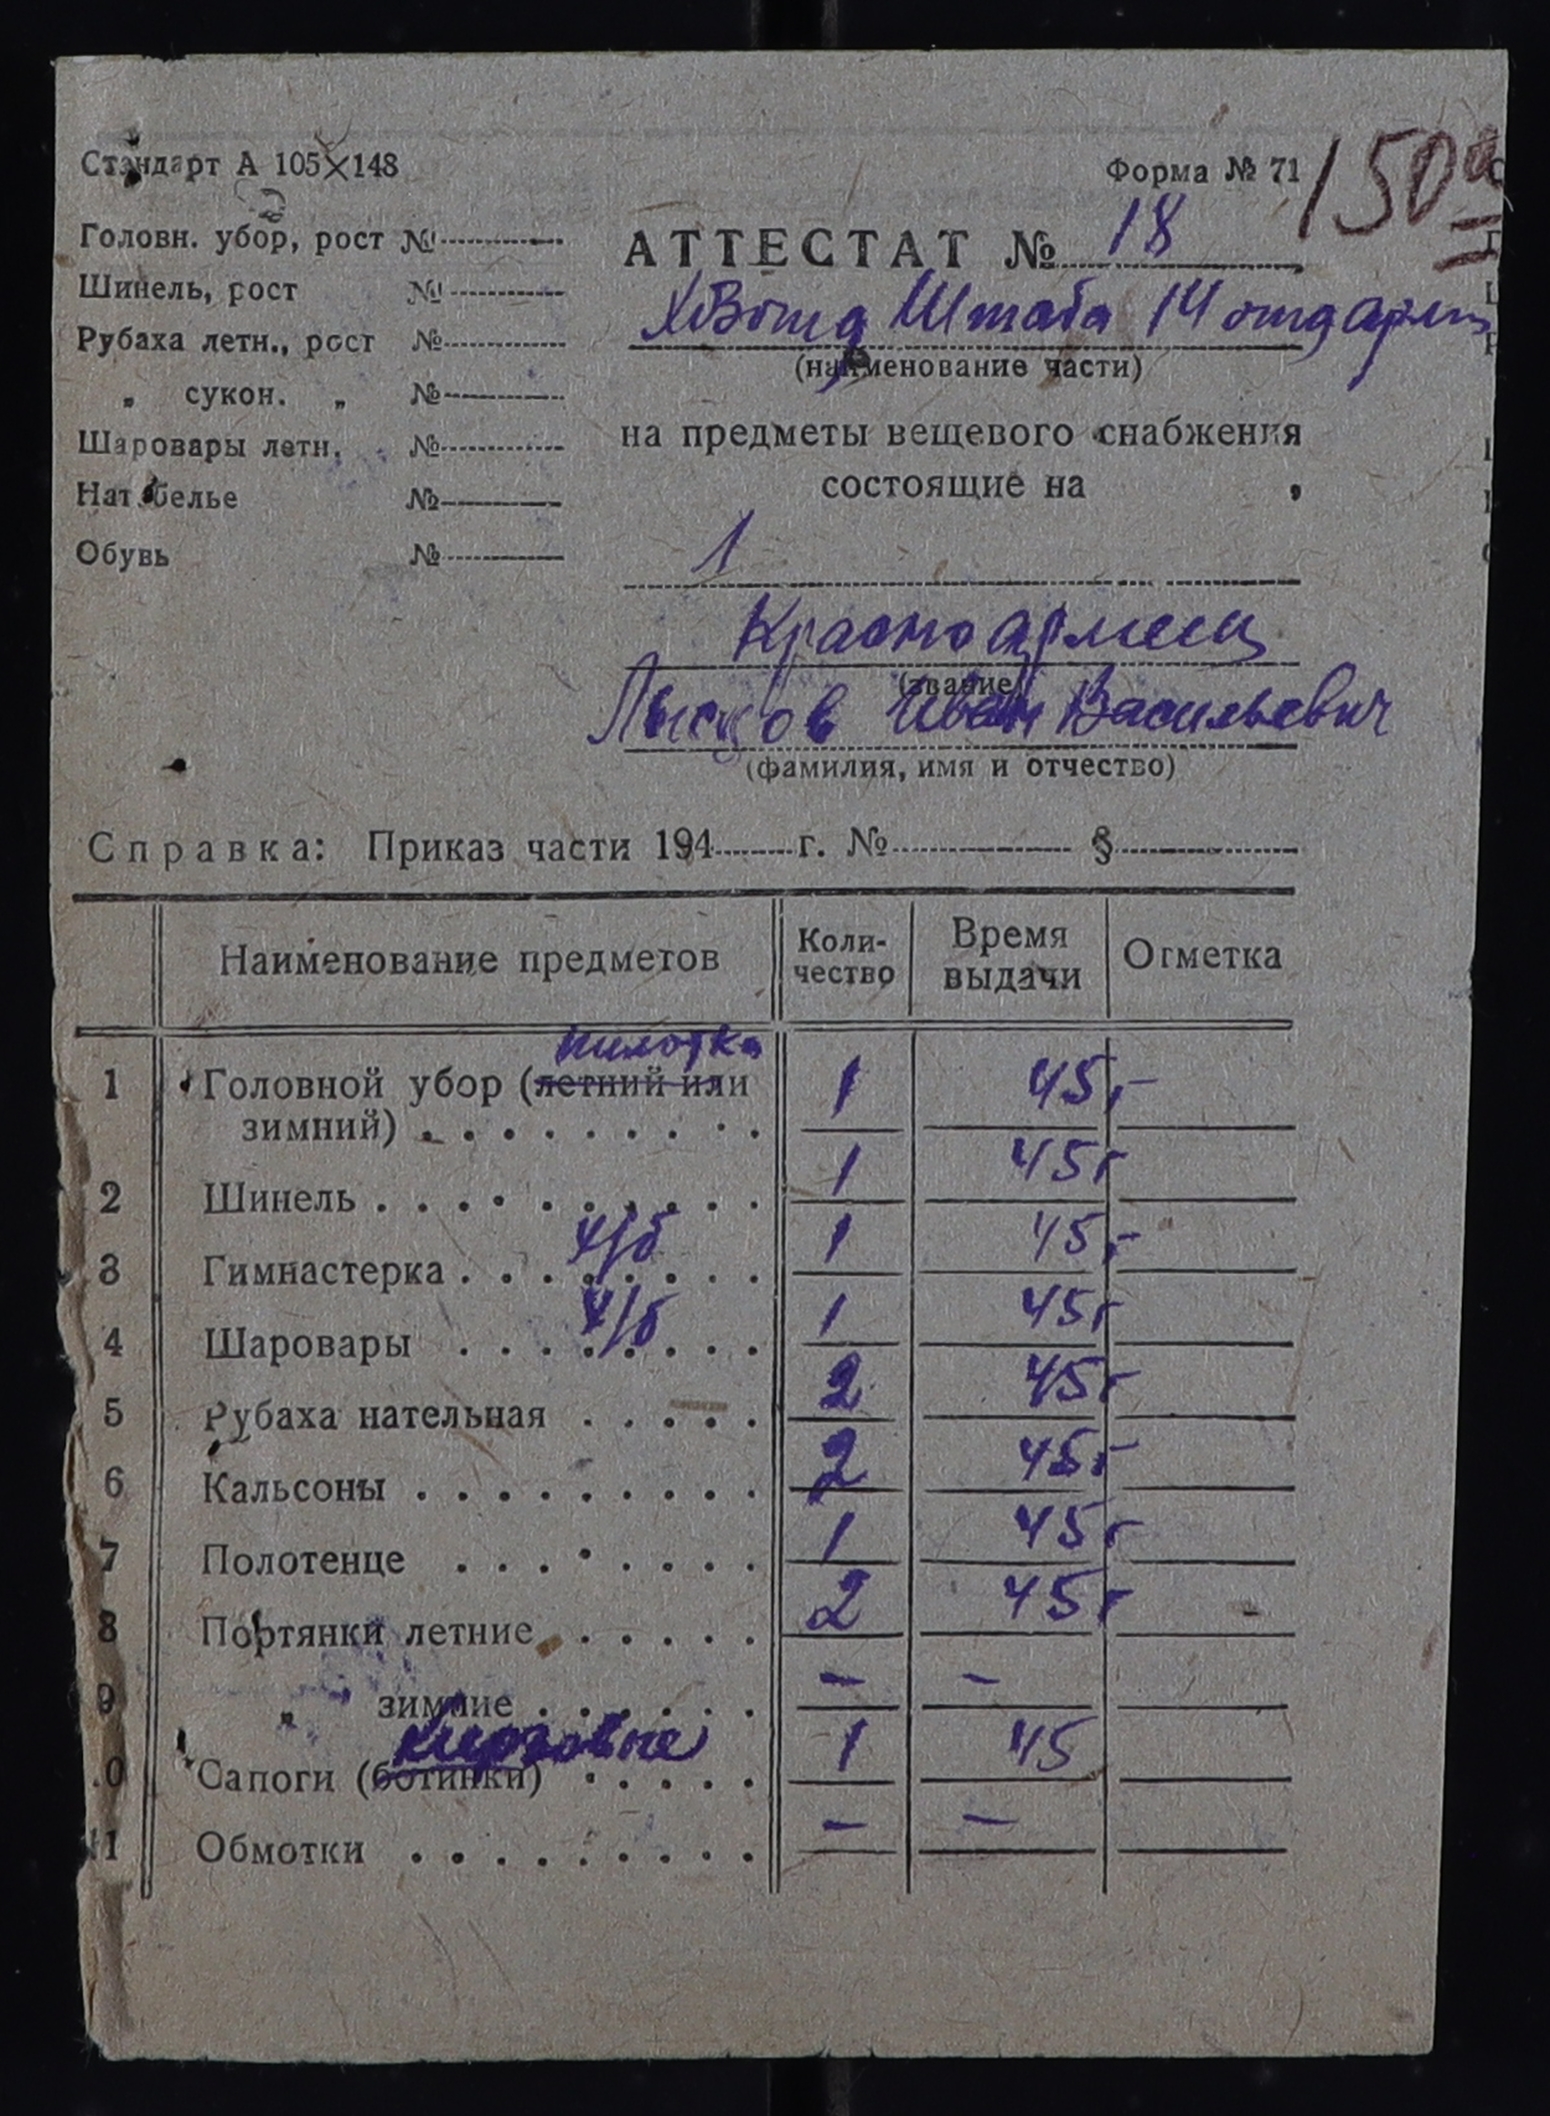 Стандарт А 105×148
Форма № 71
150
Головн. убор, рост №
Шинель, рост №
Рубаха летн., рост №
„ сукон. „ №
Шаровары летн. №
Нат. белье №
Обувь №
АТТЕСТАТ № 18
Штаба 14 отд арм
(наименование части)
на предметы вещевого снабжения
состоящие на ,
1
Красноармеец
(звание)
Лысков Иван Васильевич
(фамилия, имя и отчество)
Справка: Приказ части 194 г. № §
Наименование предметов Коли-чество Время выдачи Отметка
пилотка
1 Головной убор (летний или 1 45,-
зимний)
2 Шинель 1 45,-
3 Гимнастерка х/б 1 45,-
4 Шаровары х/б 1 45,-
5 Рубаха нательная 2 45,-
6 Кальсоны 2 45,-
7 Полотенце 1 45,-
8 Портянки летние 2 45,-
9 „ зимние - -
кирзовые
0 Сапоги (ботинки) 1 45
11 Обмотки - -